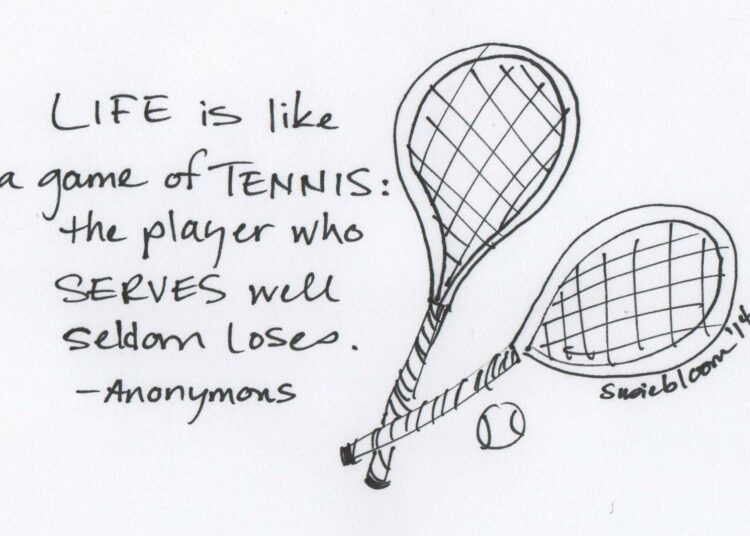 LIFE is like
a game of TENNIS:
the player who
SERVES well
seldom loses.
-Anonymous
Susiebloom '14